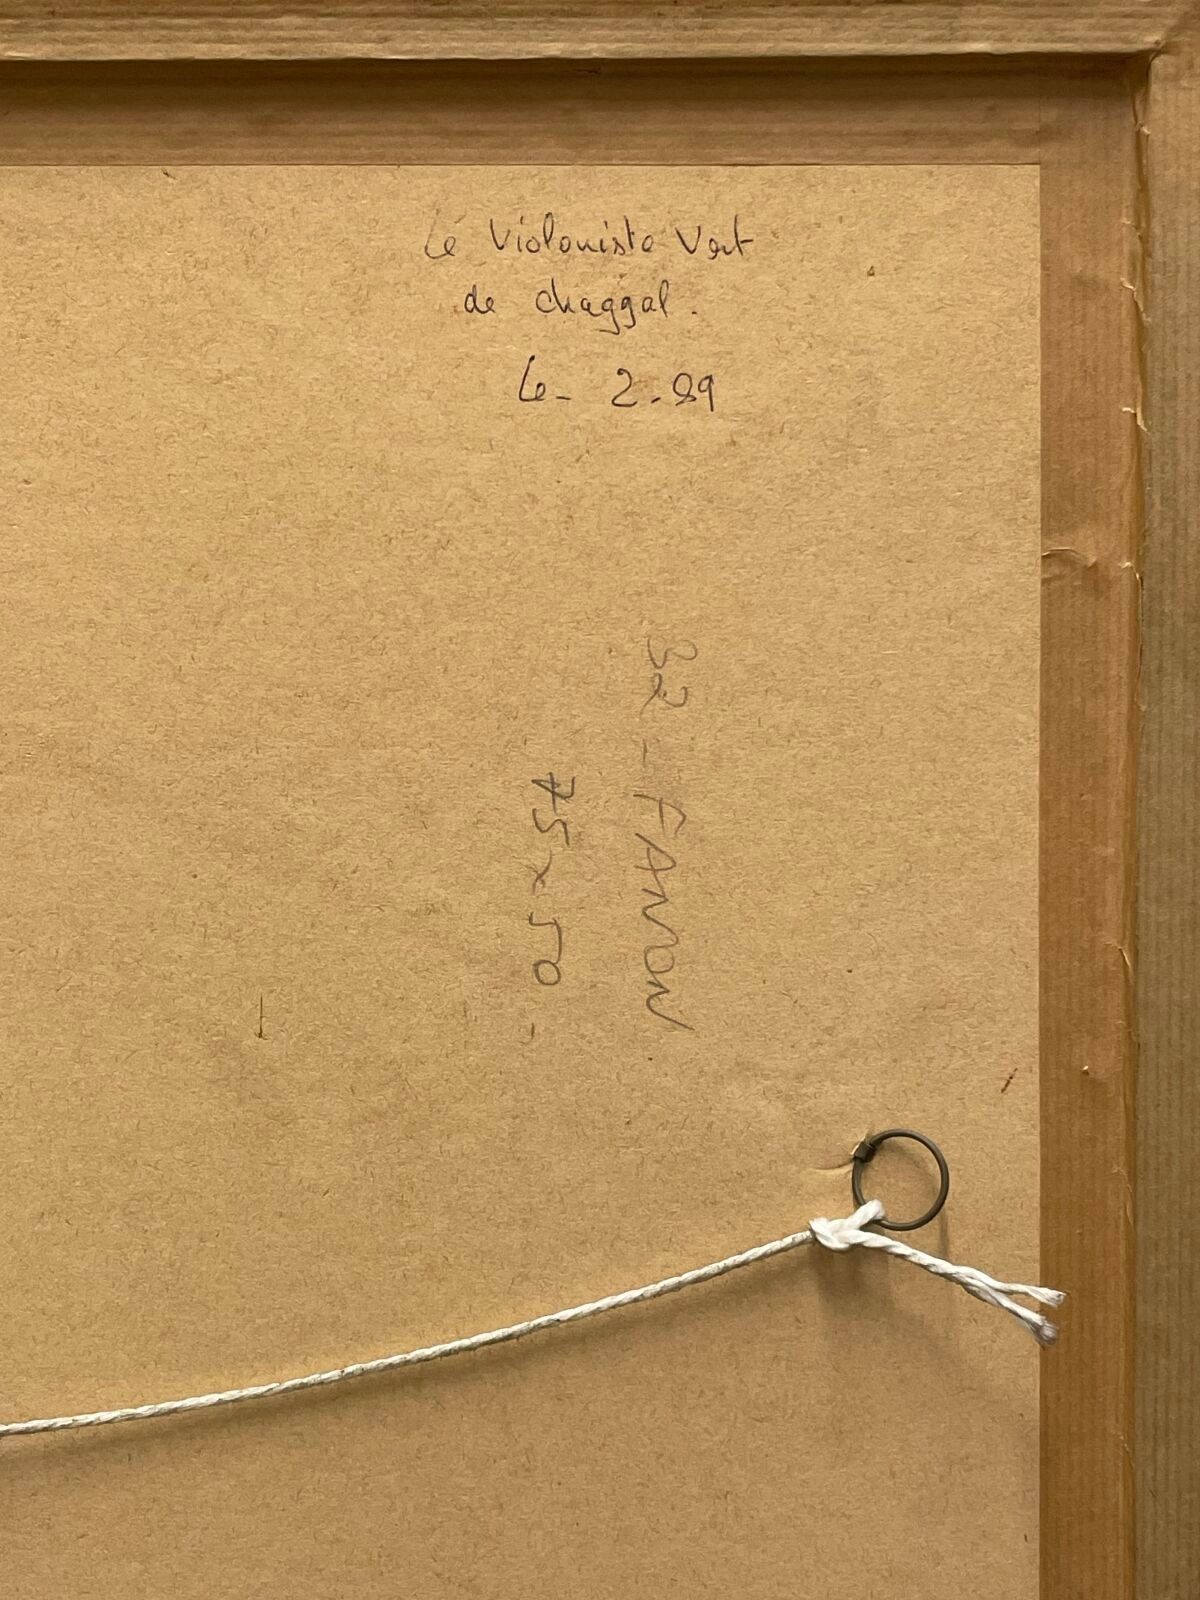 Le Violoniste Vert
de chaggal.
Le - 2.89
32 - FANION
75 x 50 -